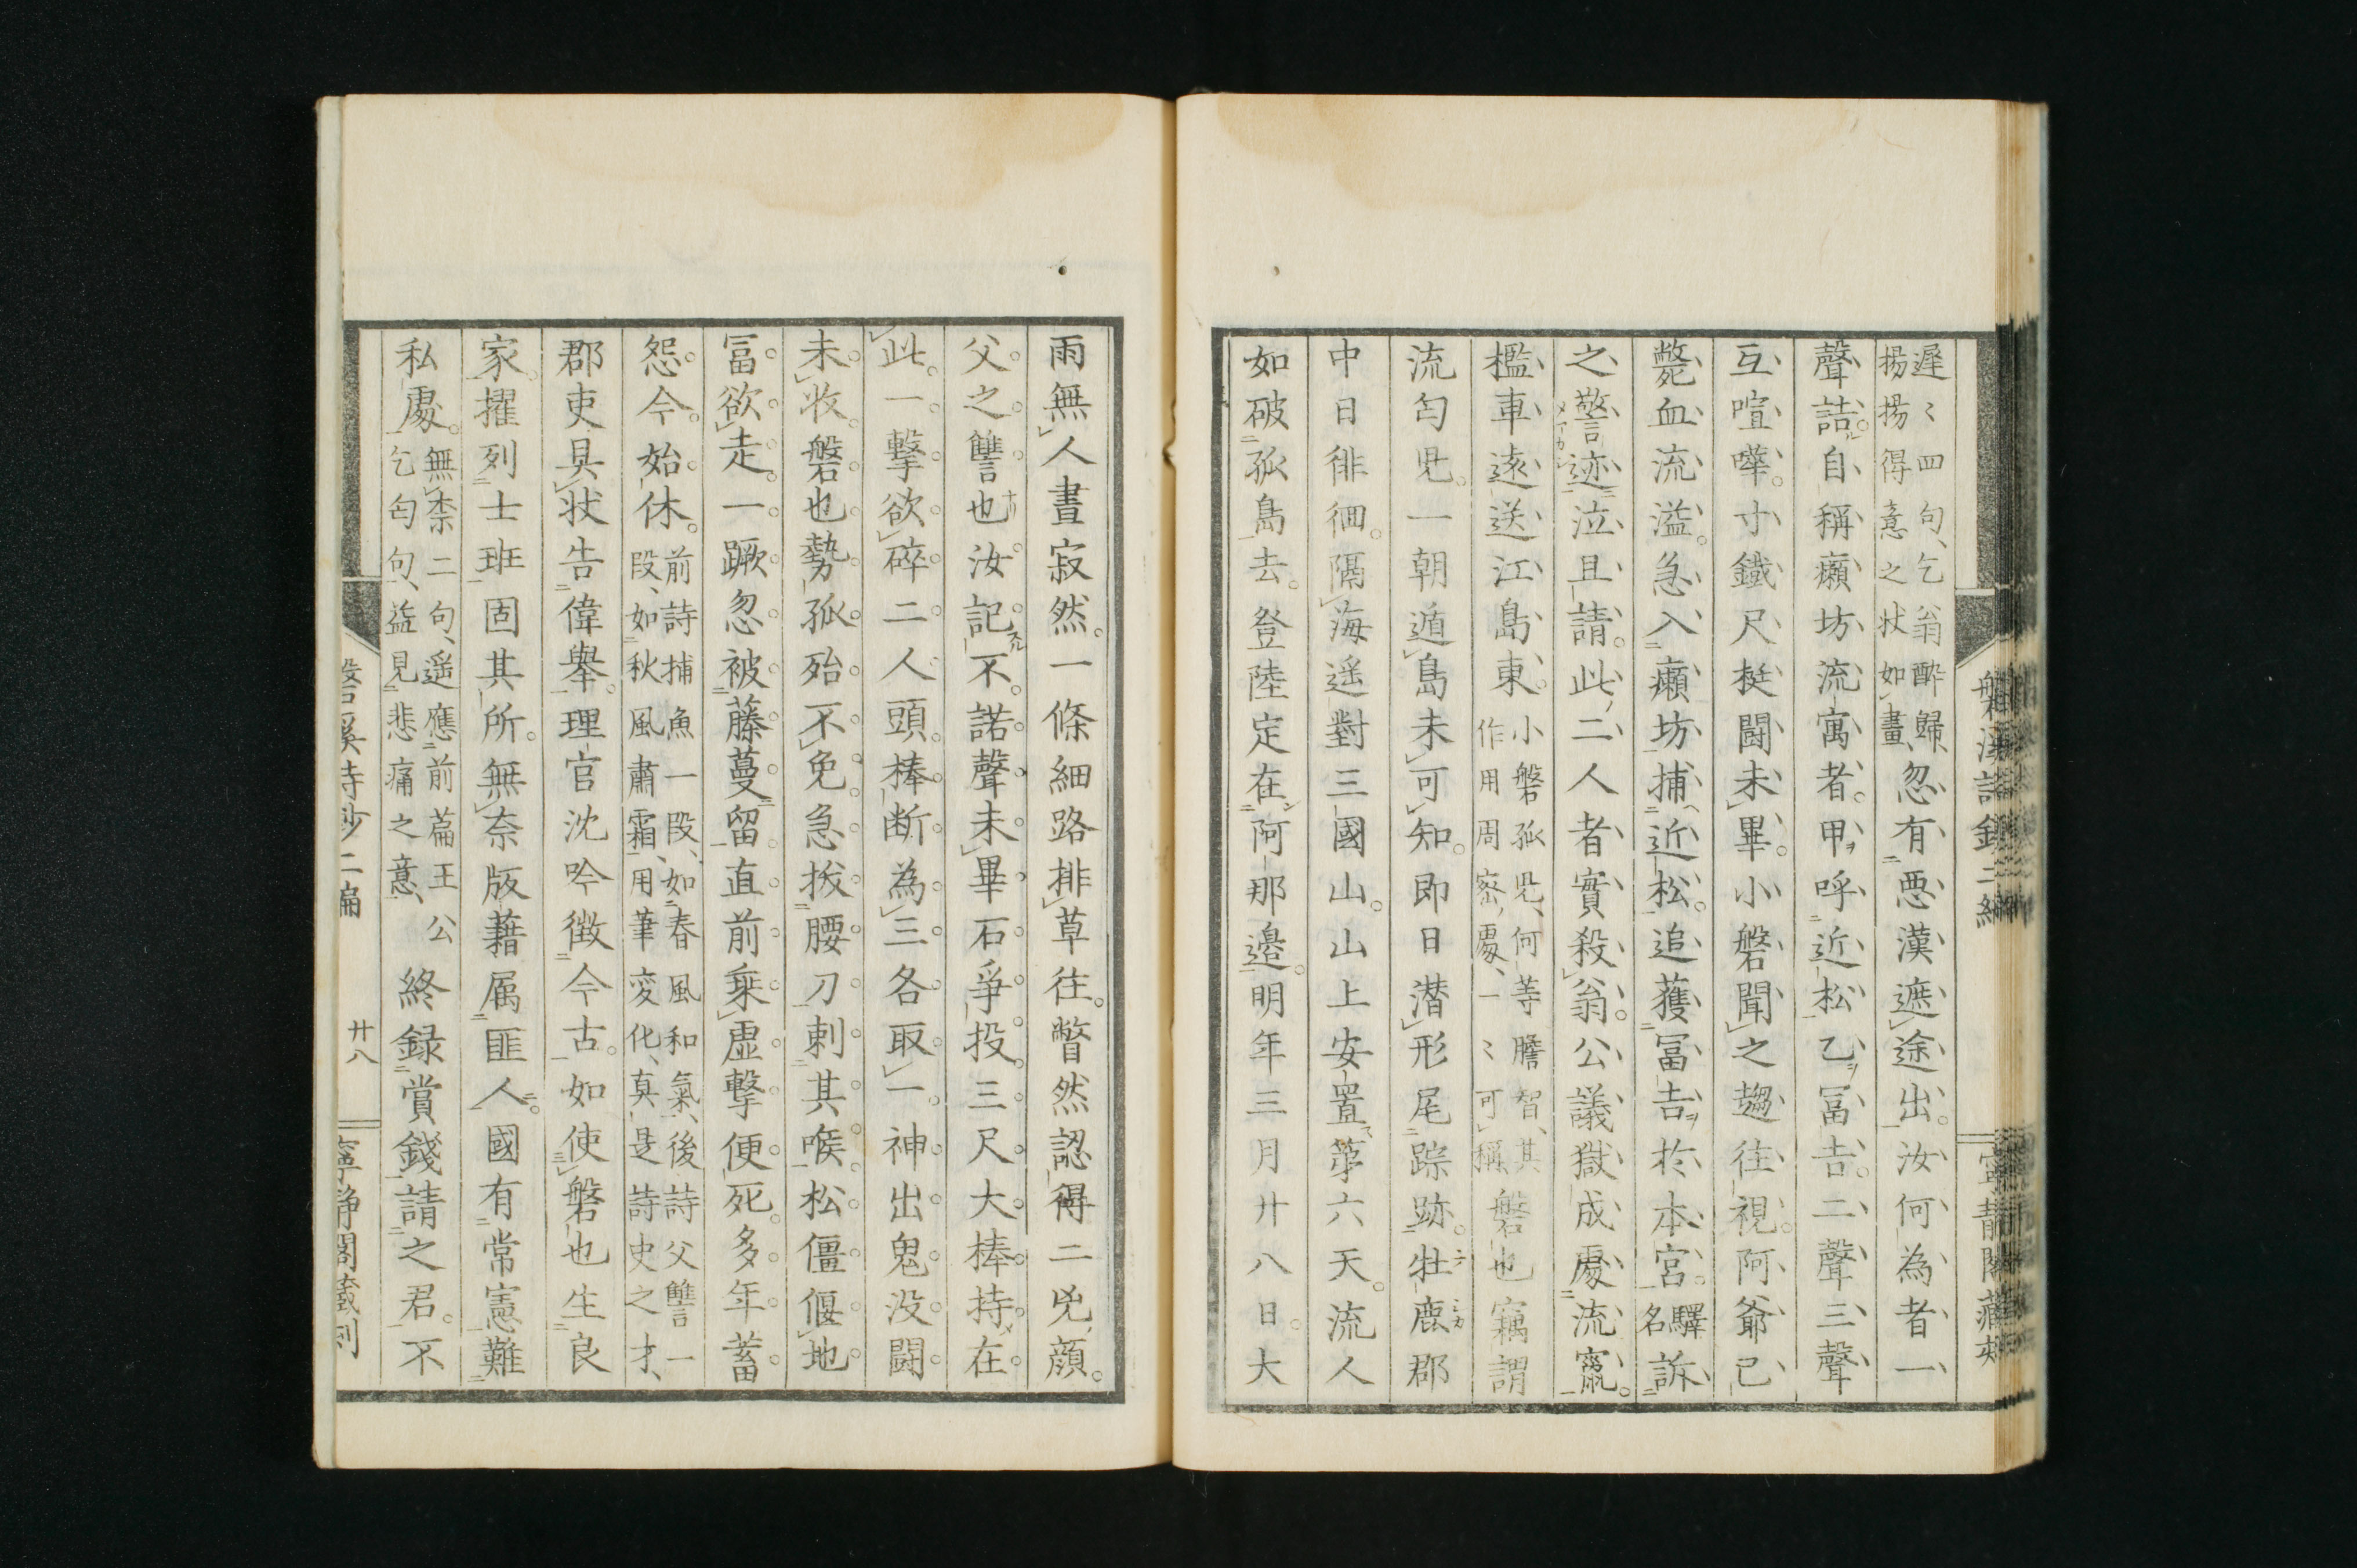 遲〻四句、乞翁醉歸、
揚揚得意之状如畫、忽有悪漢遮途出。汝何為者一
聲詰。自稱癩坊流寓者。甲呼近松乙冨吉。二聲三聲
互喧嘩。寸鐵尺梃闘未畢。小磐聞之趨往視。阿爺已
斃血流溢。急入癩坊捕近松。追獲冨吉於本宮。驛名訴
之警迹泣且請。此二人者實殺翁。公議獄成處流竄。
檻車遠送江島東。小磐孤児、何等膽智、其
作用周密處、一〻可稱 磐也竊謂
流匄児。一朝遁島未可知。即日潜形尾踪跡。牡鹿郡
中日徘徊。隔海遥對三國山。山上安置第六天。流人
如破孤島去。登陸定在阿那邉。明年三月廿八日。大
磐溪詩鈔二編
寧靜閣藏刻
雨無人晝寂然。一條細路排草往。瞥然認得二兇顔。
父之讐也汝記不。諾聲未畢石爭投。三尺大棒持在
此。一撃欲碎二人頭。棒断為三各取一。神出鬼没闘
未收。磐也勢孤殆不免。急拔腰刀刺其喉。松僵偃地
冨欲走。一蹶忽被藤蔓留。直前乗虚撃便死。多年蓄
怨今始休。前詩捕魚一段、如春風和氣、後詩父讐一
段、如秋風肅霜、用筆変化、真是詩史之才、
郡吏具状告偉舉。理官沈吟徴今古。如使磐也生良
家。擢列士班固其所。無奈版藉属匪人。國有常憲難
私處。無柰二句、遥應前篇王公
乞匄句、益見悲痛之意、 終録賞錢請之君。不
磐溪詩鈔二編
廿八
寧靜閣藏刻